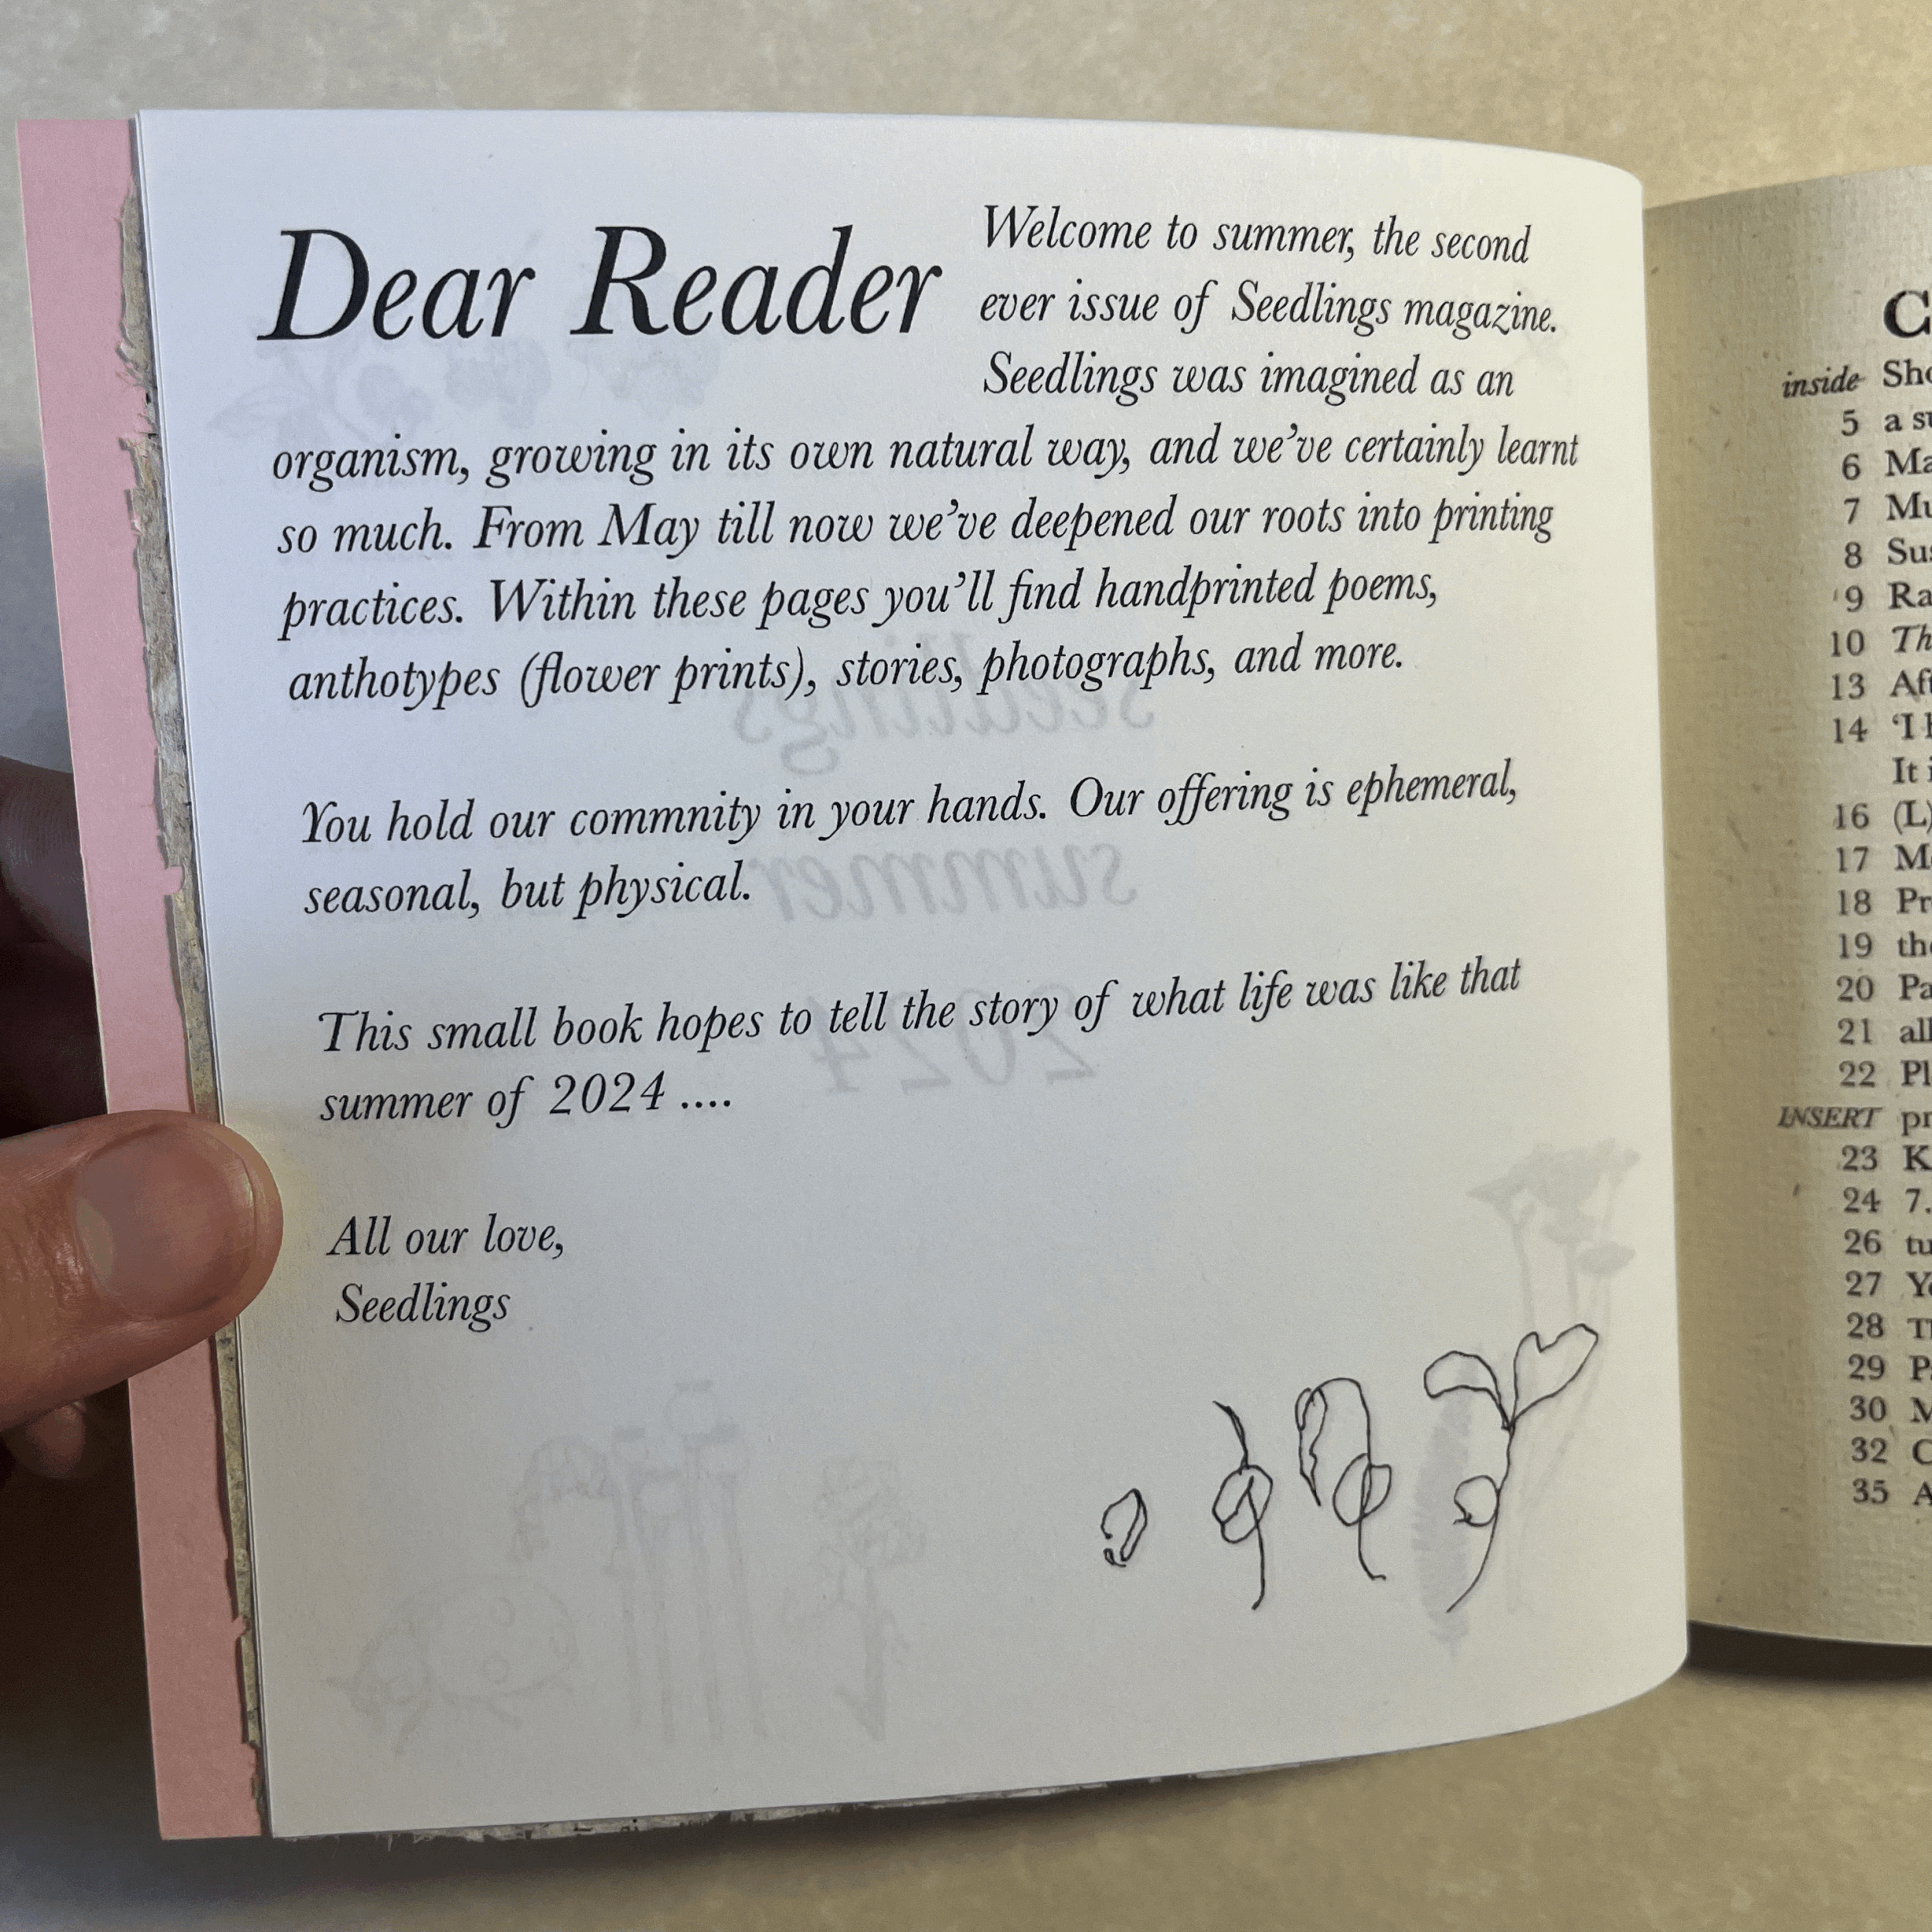 Dear Reader
Welcome to summer, the second
ever issue of Seedlings magazine.
Seedlings was imagined as an
organism, growing in its own natural way, and we've certainly learnt
so much. From May till now we've deepened our roots into printing
practices. Within these pages you'll find handprinted poems,
anthotypes (flower prints), stories, photographs, and more.
You hold our commnity in your hands. Our offering is ephemeral,
seasonal, but physical.
This small book hopes to tell the story of what life was like that
summer of 2024 ....
All our love,
Seedlings
seedlings
summer
2024
inside
5 a
6
7
8
9
10
13
14 'I
It
16 (L)
17
18
19
20
21
22
INSERT
23
24 7.
26
27
28
29
30
32
35